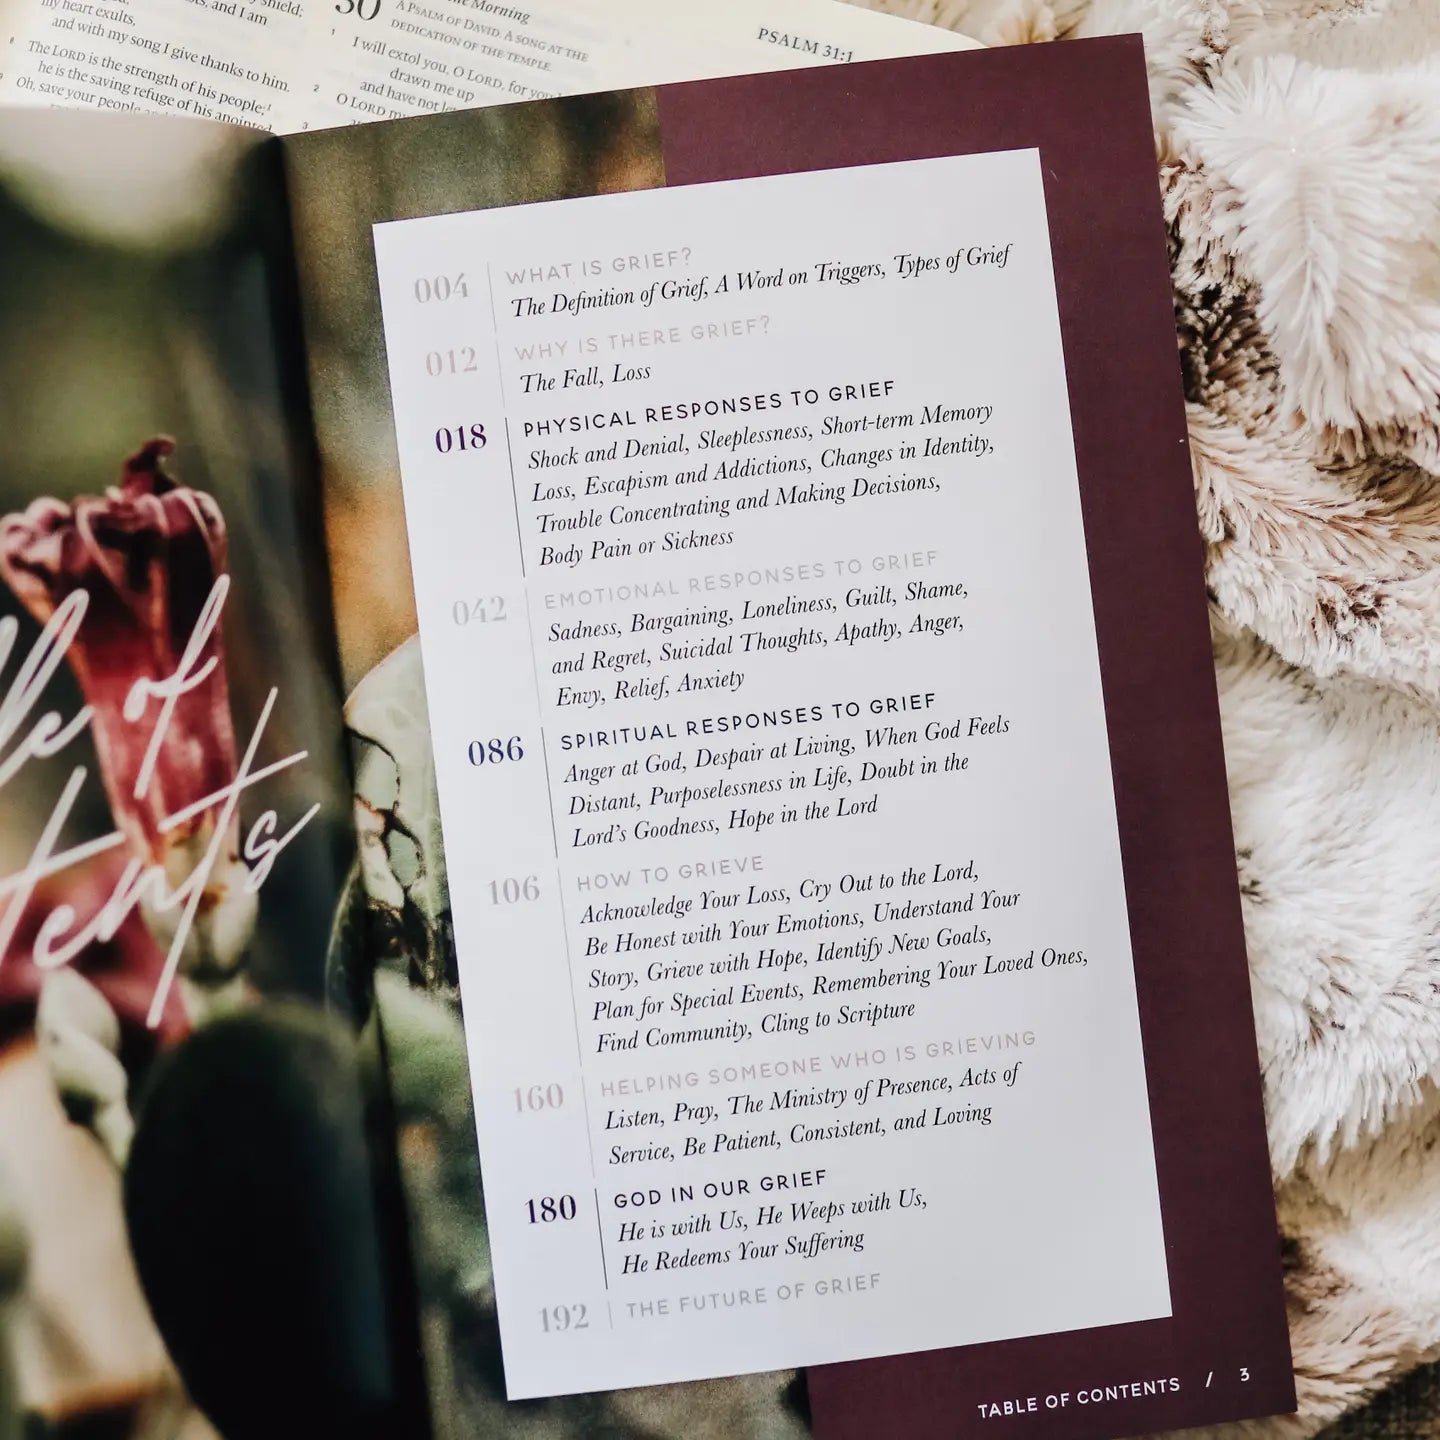 my shield;
and I am
my heart exults,
and with my song I give thanks to him.
8 The LORD is the strength of his people;
he is the saving refuge of his anointed
Oh, save your people
30
Morning
A PSALM OF DAVID. A SONG AT THE
DEDICATION OF THE TEMPLE.
1 I will extol you, O LORD, for you
drawn me up
and have not
2 O LORD
3
PSALM 31:1
of
tents
004 WHAT IS GRIEF?
The Definition of Grief, A Word on Triggers, Types of Grief
012 WHY IS THERE GRIEF?
The Fall, Loss
018 PHYSICAL RESPONSES TO GRIEF
Shock and Denial, Sleeplessness, Short-term Memory
Loss, Escapism and Addictions, Changes in Identity,
Trouble Concentrating and Making Decisions,
Body Pain or Sickness
042 EMOTIONAL RESPONSES TO GRIEF
Sadness, Bargaining, Loneliness, Guilt, Shame,
and Regret, Suicidal Thoughts, Apathy, Anger,
Envy, Relief, Anxiety
086 SPIRITUAL RESPONSES TO GRIEF
Anger at God, Despair at Living, When God Feels
Distant, Purposelessness in Life, Doubt in the
Lord's Goodness, Hope in the Lord
106 HOW TO GRIEVE
Acknowledge Your Loss, Cry Out to the Lord,
Be Honest with Your Emotions, Understand Your
Story, Grieve with Hope, Identify New Goals,
Plan for Special Events, Remembering Your Loved Ones,
Find Community, Cling to Scripture
160 HELPING SOMEONE WHO IS GRIEVING
Listen, Pray, The Ministry of Presence, Acts of
Service, Be Patient, Consistent, and Loving
180 GOD IN OUR GRIEF
He is with Us, He Weeps with Us,
He Redeems Your Suffering
192 THE FUTURE OF GRIEF
TABLE OF CONTENTS / 3